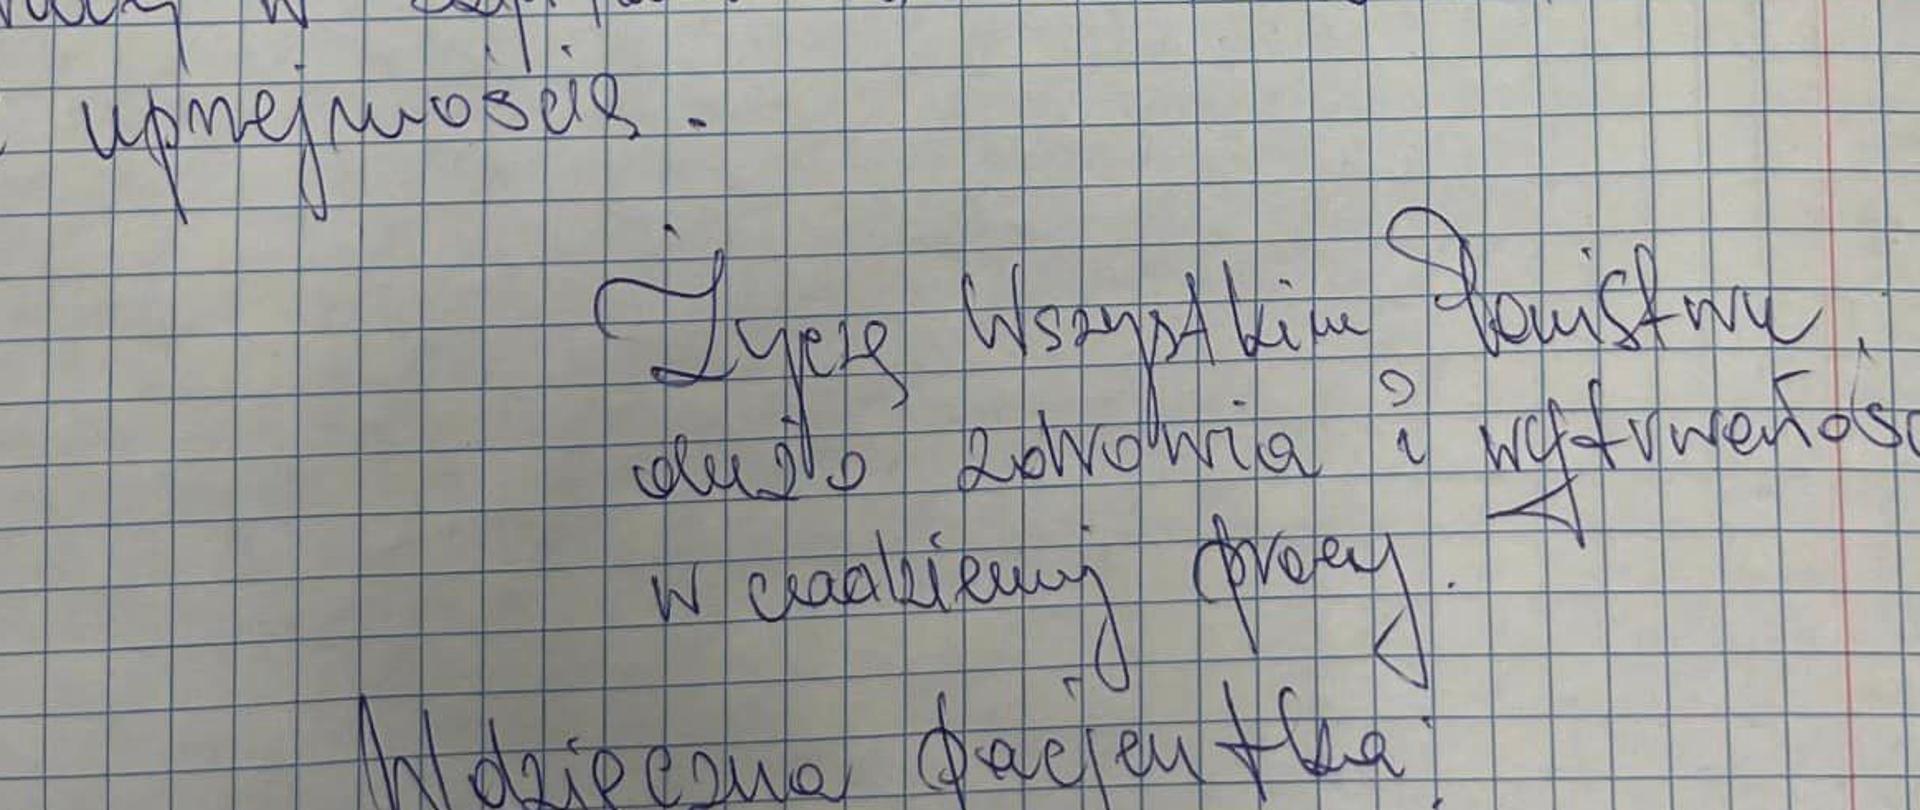 uprzejmością.
Życzę Wszystkim Państwu,
dużo zdrowia i wytrwałośc
w codziennej pracy.
Wdzięczna pacjentka